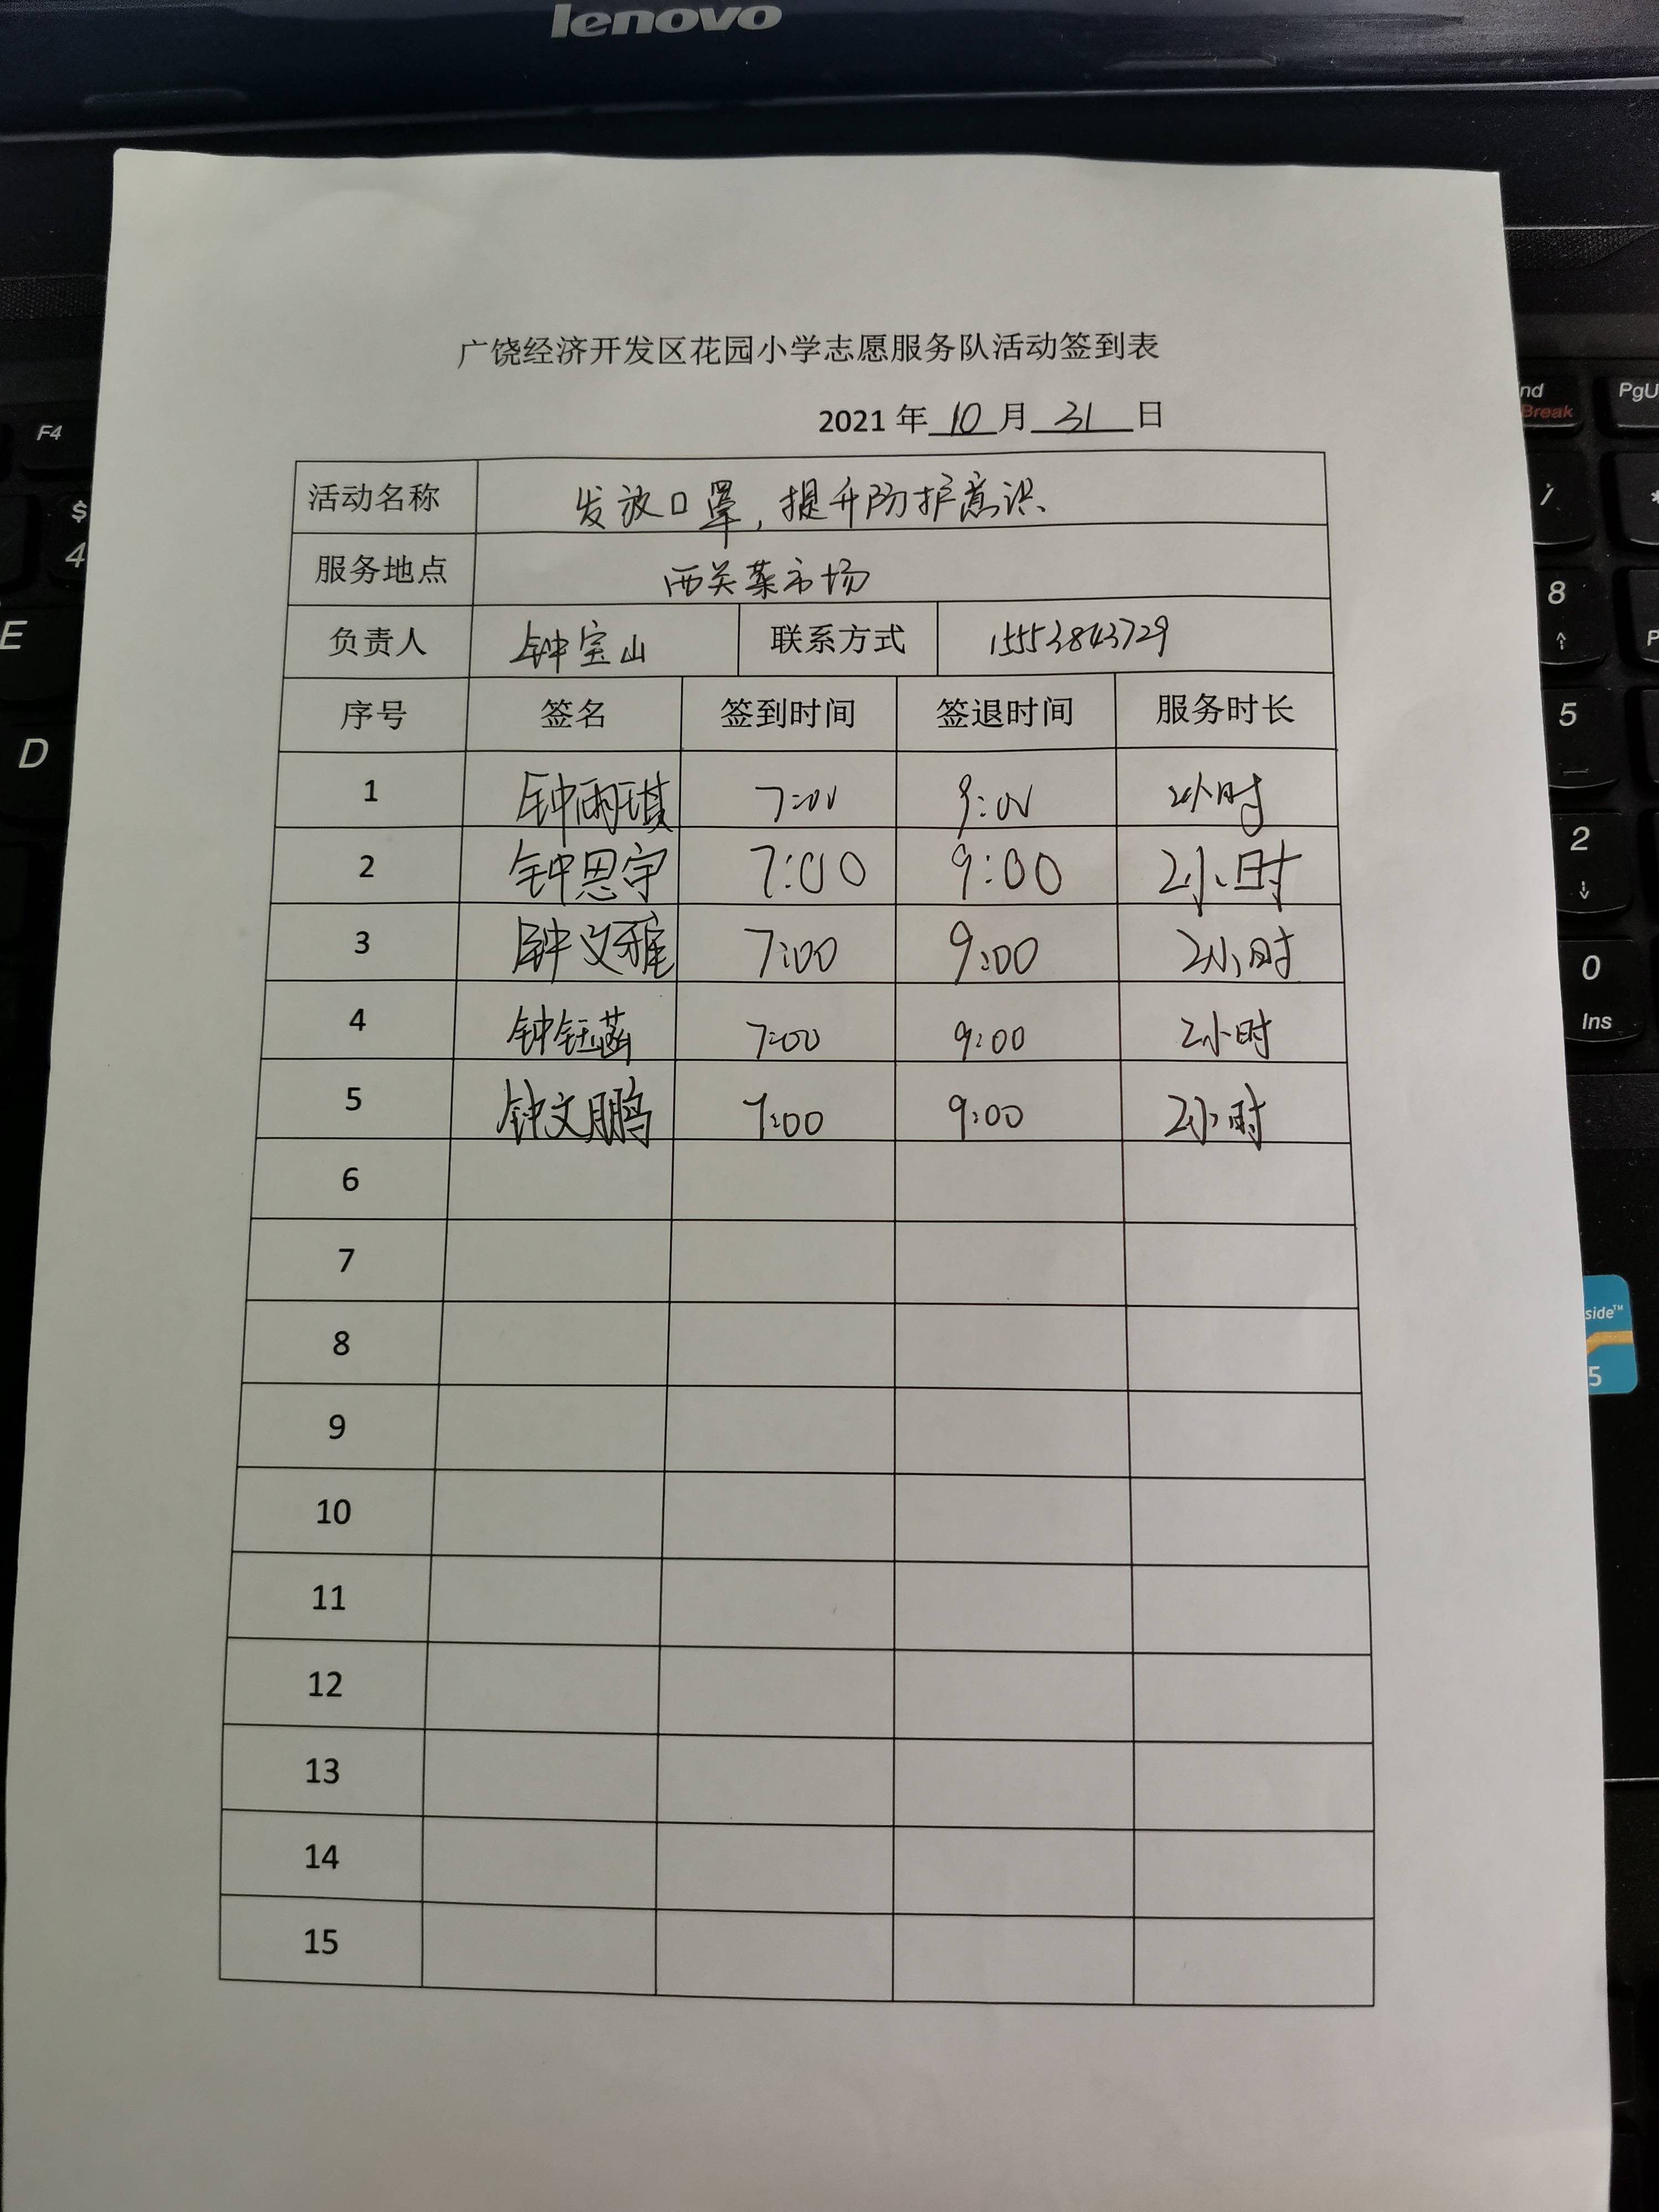 lenovo
广饶经济开发区花园小学志愿服务队活动签到表
2021 年 10 月 31 日
活动名称 发放口罩，提升防护意识、
服务地点 西关菜市场
负责人 钟宝山 联系方式 15553843729
序号 签名 签到时间 签退时间 服务时长
1 钟雨琪 7:00 9:00 2小时
2 钟思宇 7:00 9:00 2小时
3 钟文雅 7:00 9:00 2小时
4 钟钰菡 7:00 9:00 2小时
5 钟文鹏 7:00 9:00 2小时
6
7
8
9
10
11
12
13
14
15
F4
$
4
E
D
nd
Break
PgU
8
5
2
0
Ins
side™
5